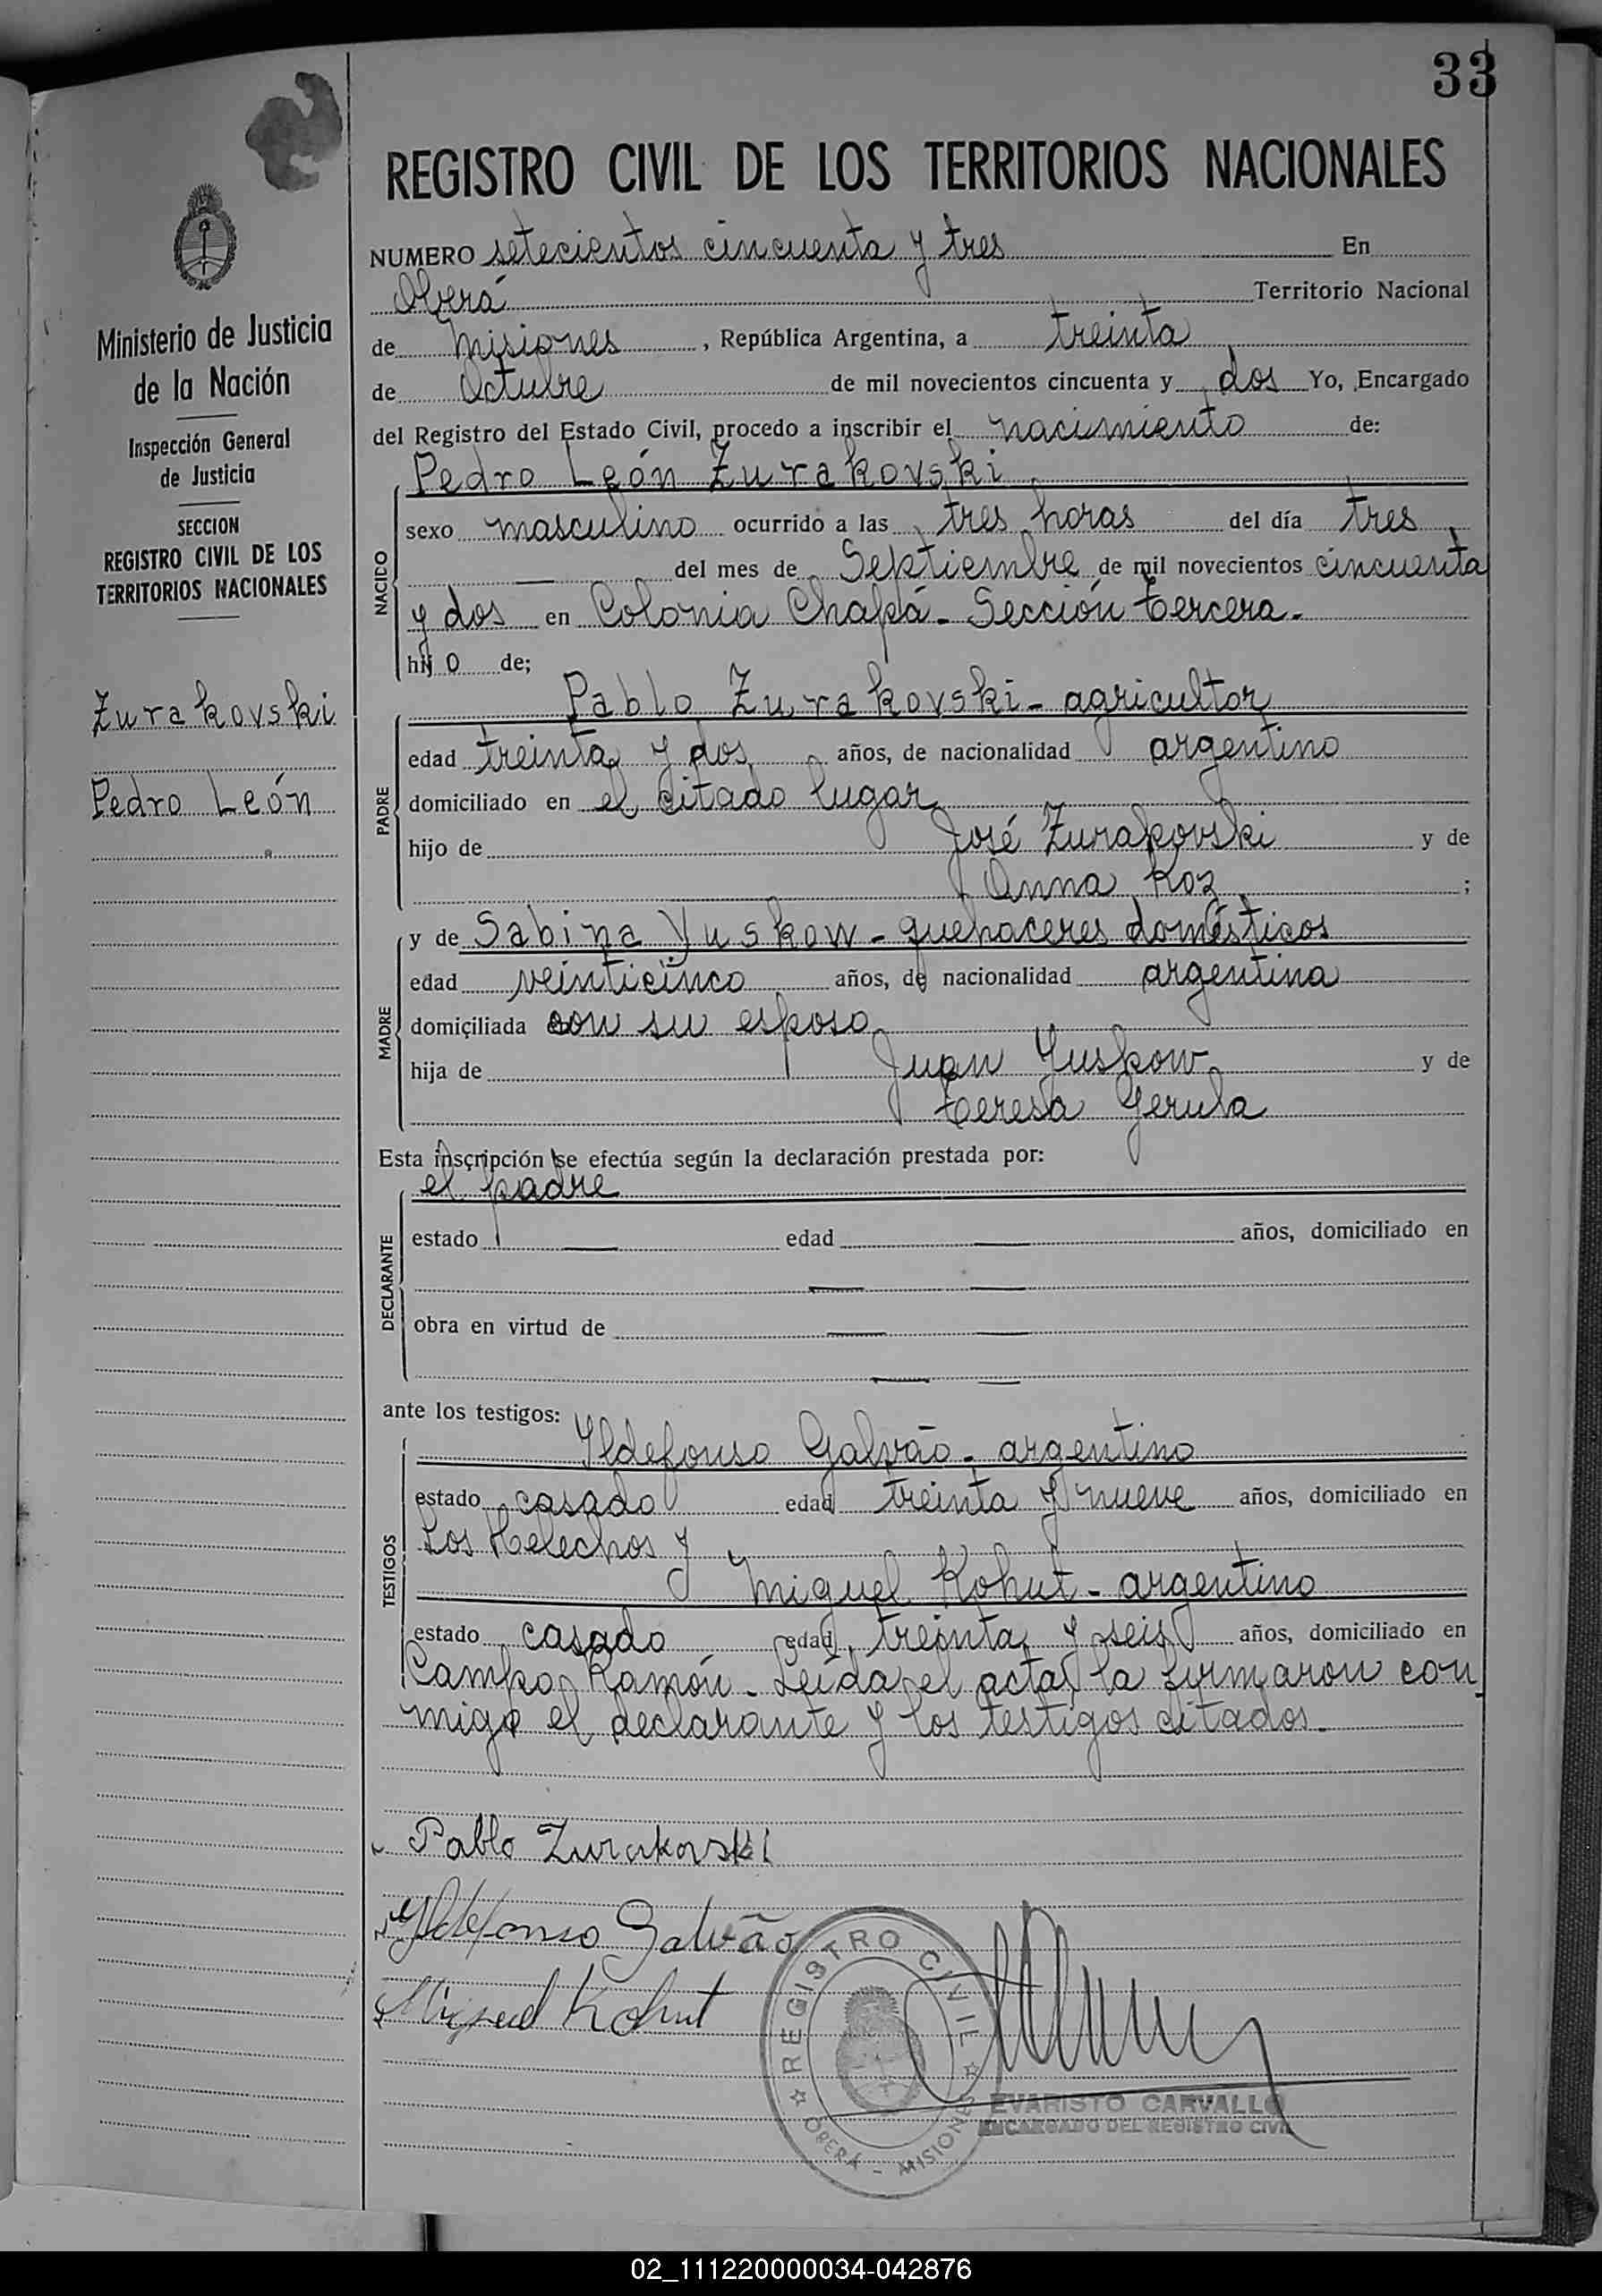 33
REGISTRO CIVIL DE LOS TERRITORIOS NACIONALES
Ministerio de Justicia
de la Nación
Inspección General
de Justicia
SECCION
REGISTRO CIVIL DE LOS
TERRITORIOS NACIONALES
Zurakovski
Pedro León
NUMERO setecientos cincuenta y tres En
Oberá Territorio Nacional
de Misiones , República Argentina, a treinta
de Octubre de mil novecientos cincuenta y dos Yo, Encargado
del Registro del Estado Civil, procedo a inscribir el nacimiento de:
NACIDO
Pedro León Zurakovski
sexo masculino ocurrido a las tres horas del día tres
— del mes de Septiembre de mil novecientos cincuenta
y dos en Colonia Chapá - Sección tercera.
hij o de;
PADRE
Pablo Zurakovski - agricultor
edad treinta y dos años, de nacionalidad argentino
domiciliado en el citado lugar
hijo de José Zurakovski y de
Anna Koz ;
MADRE
y de Sabina Yuskow - quehaceres domésticos
edad veinticinco años, de nacionalidad argentina
domiciliada con su esposo
hija de Juan Yuskow y de
teresa Gerula
Esta inscripción se efectúa según la declaración prestada por:
DECLARANTE
el padre
estado — edad — años, domiciliado en
— —
obra en virtud de — —
— —
ante los testigos:
TESTIGOS
Yldefonso Galvão - argentino
estado casado edad treinta y nueve años, domiciliado en
Los Helechos y
Miguel Kohut - argentino
estado casado edad treinta y seis años, domiciliado en
Campo Ramón - Leída el acta, la firmaron con
migo el declarante y los testigos citados.
Pablo Zurakovski
Yldefonso Galvão
Miguel Kohut
REGISTRO CIVIL
OBERÁ - MISIONES
EVARISTO CARVALLO
ENCARGADO DEL REGISTRO CIVIL
02_111220000034-042876